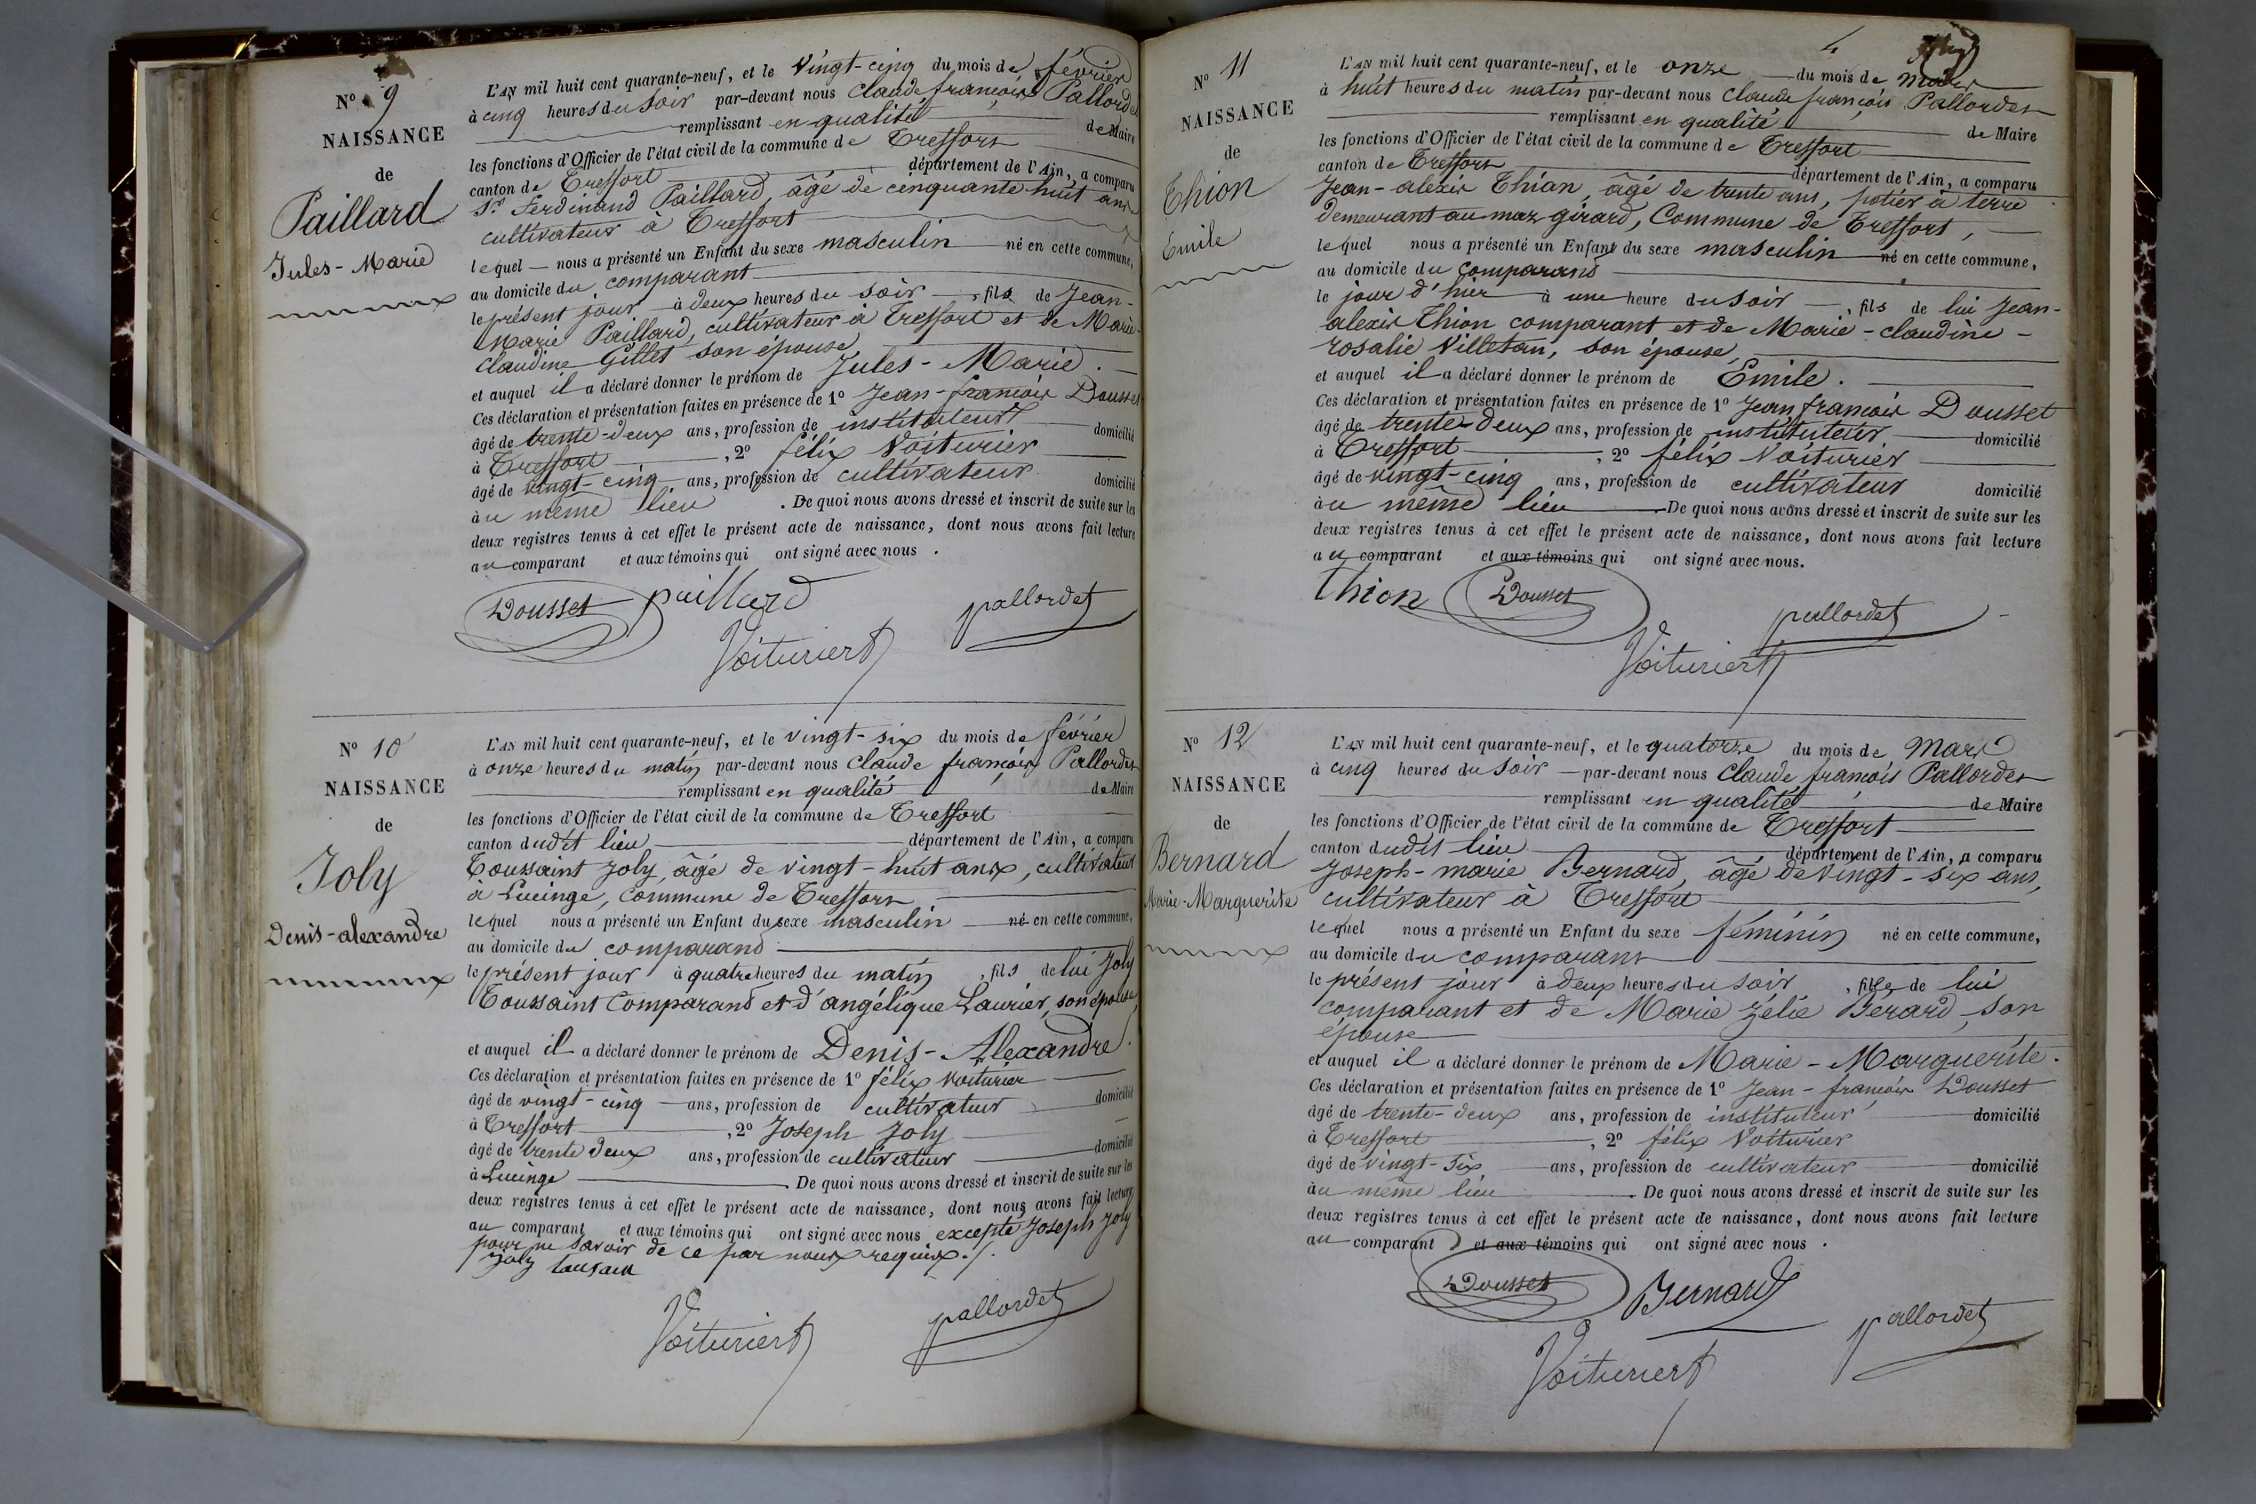 N° 9
NAISSANCE
de
Paillard
Jules-Marie
L'AN mil huit cent quarante-neuf, et le vingt-cinq du mois de février
à cinq heures du soir par-devant nous Claude françois Pallordet
remplissant en qualité de Maire
les fonctions d'Officier de l'état civil de la commune de Treffort
canton de Treffort département de l'Ain, a comparu
Sr. Ferdinand Paillard, âgé de cinquante huit ans
cultivateur à Treffort
lequel nous a présenté un Enfant du sexe masculin né en cette commune,
au domicile du comparant
le présent jour à deux heures du soir, fils de Jean-
Marie Paillard, cultivateur à Treffort et de Marie-
Claudine Gillet son épouse
et auquel il a déclaré donner le prénom de Jules-Marie.
Ces déclaration et présentation faites en présence de 1° Jean-françois Dousset
âgé de trente-deux ans, profession de instituteur domicilié
à Treffort, 2° félix Voiturier
âgé de vingt-cinq ans, profession de cultivateur domicilié
au même lieu. De quoi nous avons dressé et inscrit de suite sur les
deux registres tenus à cet effet le présent acte de naissance, dont nous avons fait lecture
au comparant et aux témoins qui ont signé avec nous.
Dousset paillard pallordet
Voiturier
N° 10
NAISSANCE
de
Joly
Denis-alexandre
L'AN mil huit cent quarante-neuf, et le vingt-six du mois de février
à onze heures du matin par-devant nous Claude françois Pallordet
remplissant en qualité de Maire
les fonctions d'Officier de l'état civil de la commune de Treffort
canton dudit lieu département de l'Ain, a comparu
Toussaint Joly, âgé de vingt-huit ans, cultivateur
à Lucinge, commune de Treffort
lequel nous a présenté un Enfant du sexe masculin né en cette commune,
au domicile du comparand
le présent jour à quatre heures du matin, fils de lui Joly
Toussaint Comparand et d'angélique Laurier, son épouse,
et auquel il a déclaré donner le prénom de Denis-Alexandre.
Ces déclaration et présentation faites en présence de 1° félix Voiturier
âgé de vingt-cinq ans, profession de cultivateur domicilié
à Treffort, 2° Joseph Joly
âgé de trente deux ans, profession de cultivateur domicilié
à Lucinge. De quoi nous avons dressé et inscrit de suite sur les
deux registres tenus à cet effet le présent acte de naissance, dont nous avons fait lecture
au comparant et aux témoins qui ont signé avec nous excepté Joseph Joly
pour ne savoir de ce par nous requis./.
Joly tousain
Voiturier pallordet
4
N° 11
NAISSANCE
de
Thion
Emile
L'AN mil huit cent quarante-neuf, et le onze du mois de Mars
à huit heures du matin par-devant nous Claude françois Pallordet
remplissant en qualité de Maire
les fonctions d'Officier de l'état civil de la commune de Treffort
canton de Treffort département de l'Ain, a comparu
Jean-alexis Thion, âgé de trente ans, potier à terre
demeurant au maz girard, Commune de Treffort,
lequel nous a présenté un Enfant du sexe masculin né en cette commune,
au domicile du comparand
le jour d'hier à une heure du soir, fils de lui Jean-
alexis Thion comparant et de Marie-claudine-
rosalie Villetan, son épouse,
et auquel il a déclaré donner le prénom de Emile.
Ces déclaration et présentation faites en présence de 1° Jean françois Dousset
âgé de trente-deux ans, profession de instituteur domicilié
à Treffort, 2° félix Voiturier
âgé de vingt-cinq ans, profession de cultivateur domicilié
au même lieu De quoi nous avons dressé et inscrit de suite sur les
deux registres tenus à cet effet le présent acte de naissance, dont nous avons fait lecture
au comparant et aux témoins qui ont signé avec nous.
Thion Dousset pallordet
Voiturier
N° 12
NAISSANCE
de
Bernard
Marie-Marguerite
L'AN mil huit cent quarante-neuf, et le quatorze du mois de Mars
à cinq heures du soir par-devant nous Claude françois Pallordet
remplissant en qualité de Maire
les fonctions d'Officier de l'état civil de la commune de Treffort
canton dudit lieu département de l'Ain, a comparu
Joseph-marie Bernard, âgé de vingt-six ans,
cultivateur à Treffort
lequel nous a présenté un Enfant du sexe féminin né en cette commune,
au domicile du comparant
le présent jour à deux heures du soir, fille de lui
comparant et de Marie Zélie Bérard, son
épouse
et auquel il a déclaré donner le prénom de Marie-Marguerite.
Ces déclaration et présentation faites en présence de 1° Jean-françois Dousset
âgé de trente-deux ans, profession de instituteur domicilié
à Treffort, 2° félix Voiturier
âgé de vingt-six ans, profession de cultivateur domicilié
au même lieu. De quoi nous avons dressé et inscrit de suite sur les
deux registres tenus à cet effet le présent acte de naissance, dont nous avons fait lecture
au comparant et aux témoins qui ont signé avec nous.
Dousset Bernard pallordet
Voiturier